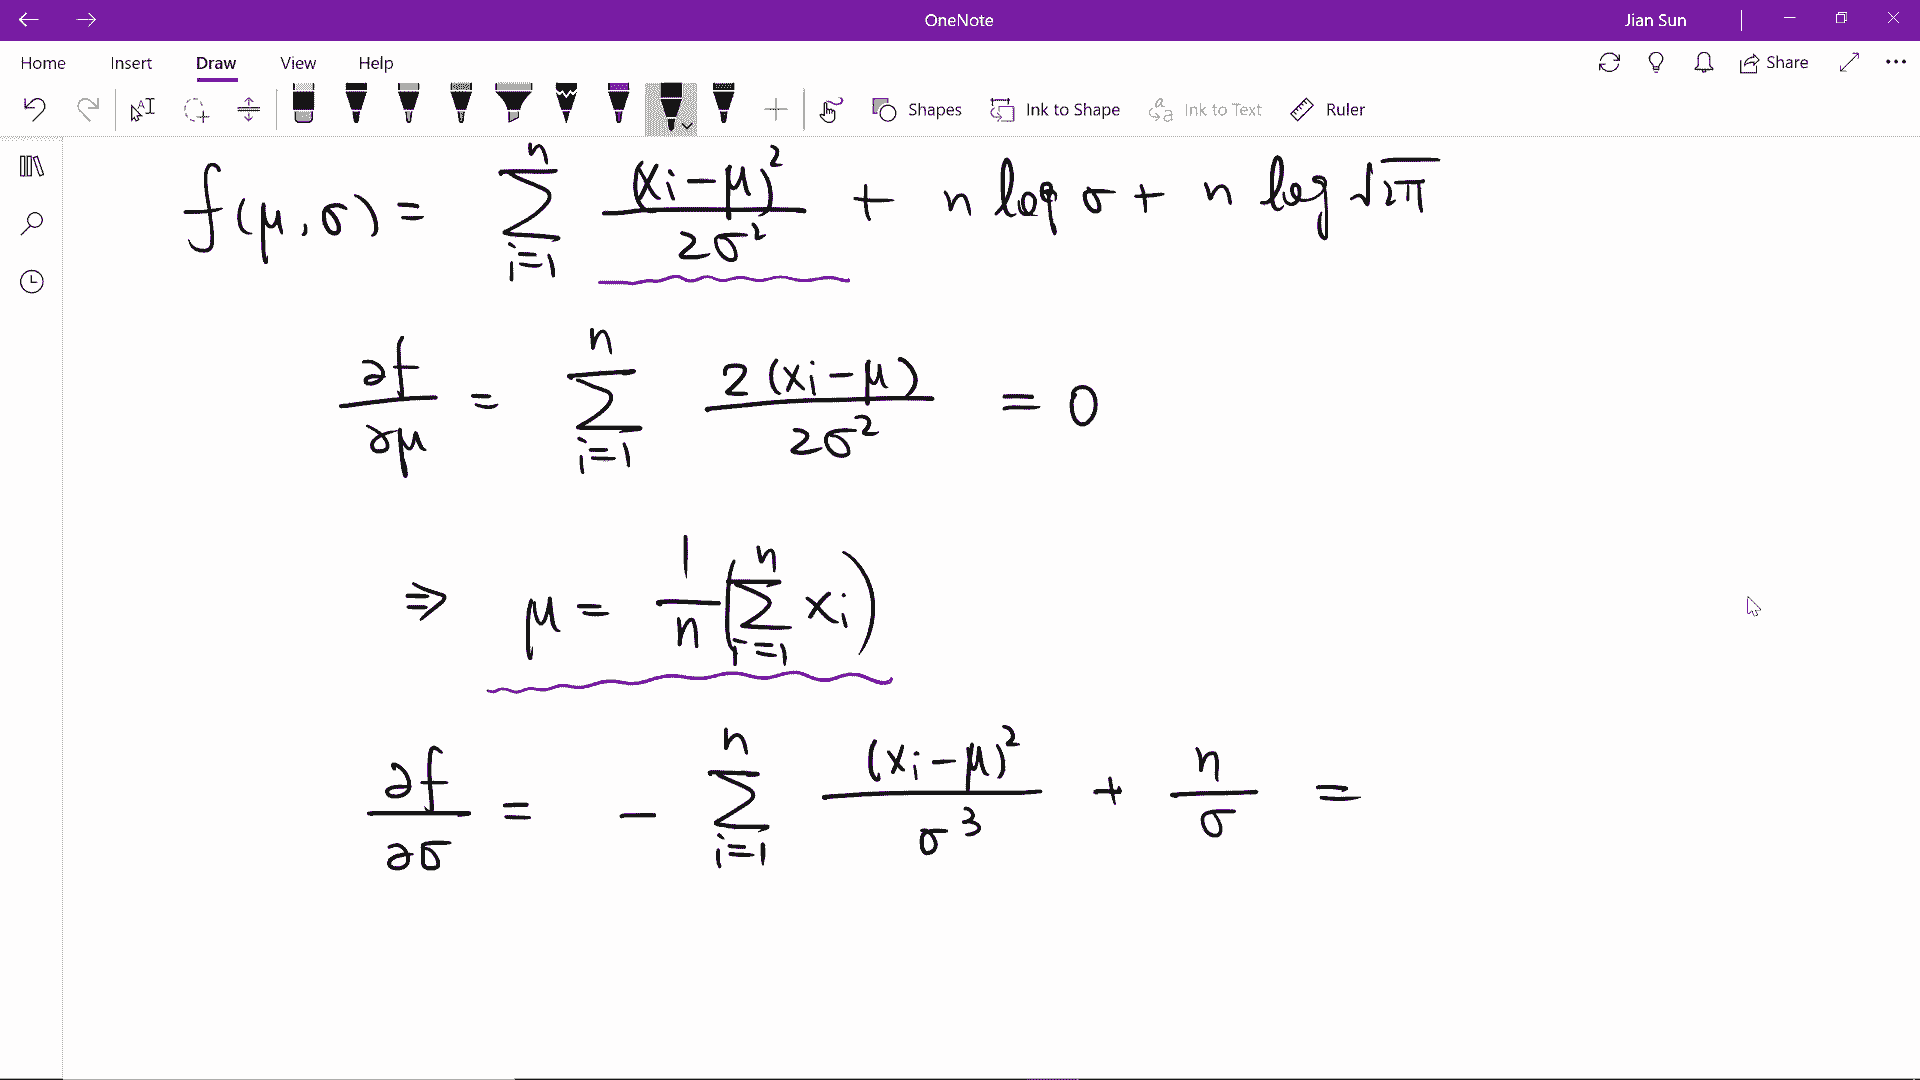 OneNote
Jian Sun
Home Insert Draw View Help
Share
Shapes Ink to Shape Ink to Text Ruler
f(μ, σ) = ∑_{i=1}^{n} (xi − μ)² / 2σ² + n log σ + n log √2π
∂f/∂μ = ∑_{i=1}^{n} 2(xi − μ) / 2σ² = 0
⇒ μ = 1/n (∑_{i=1}^{n} xi)
∂f/∂σ = − ∑_{i=1}^{n} (xi − μ)² / σ³ + n/σ =